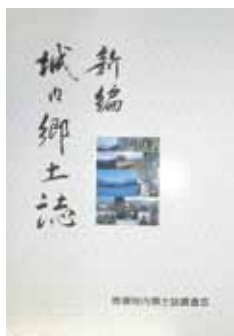 新編
城内郷土誌